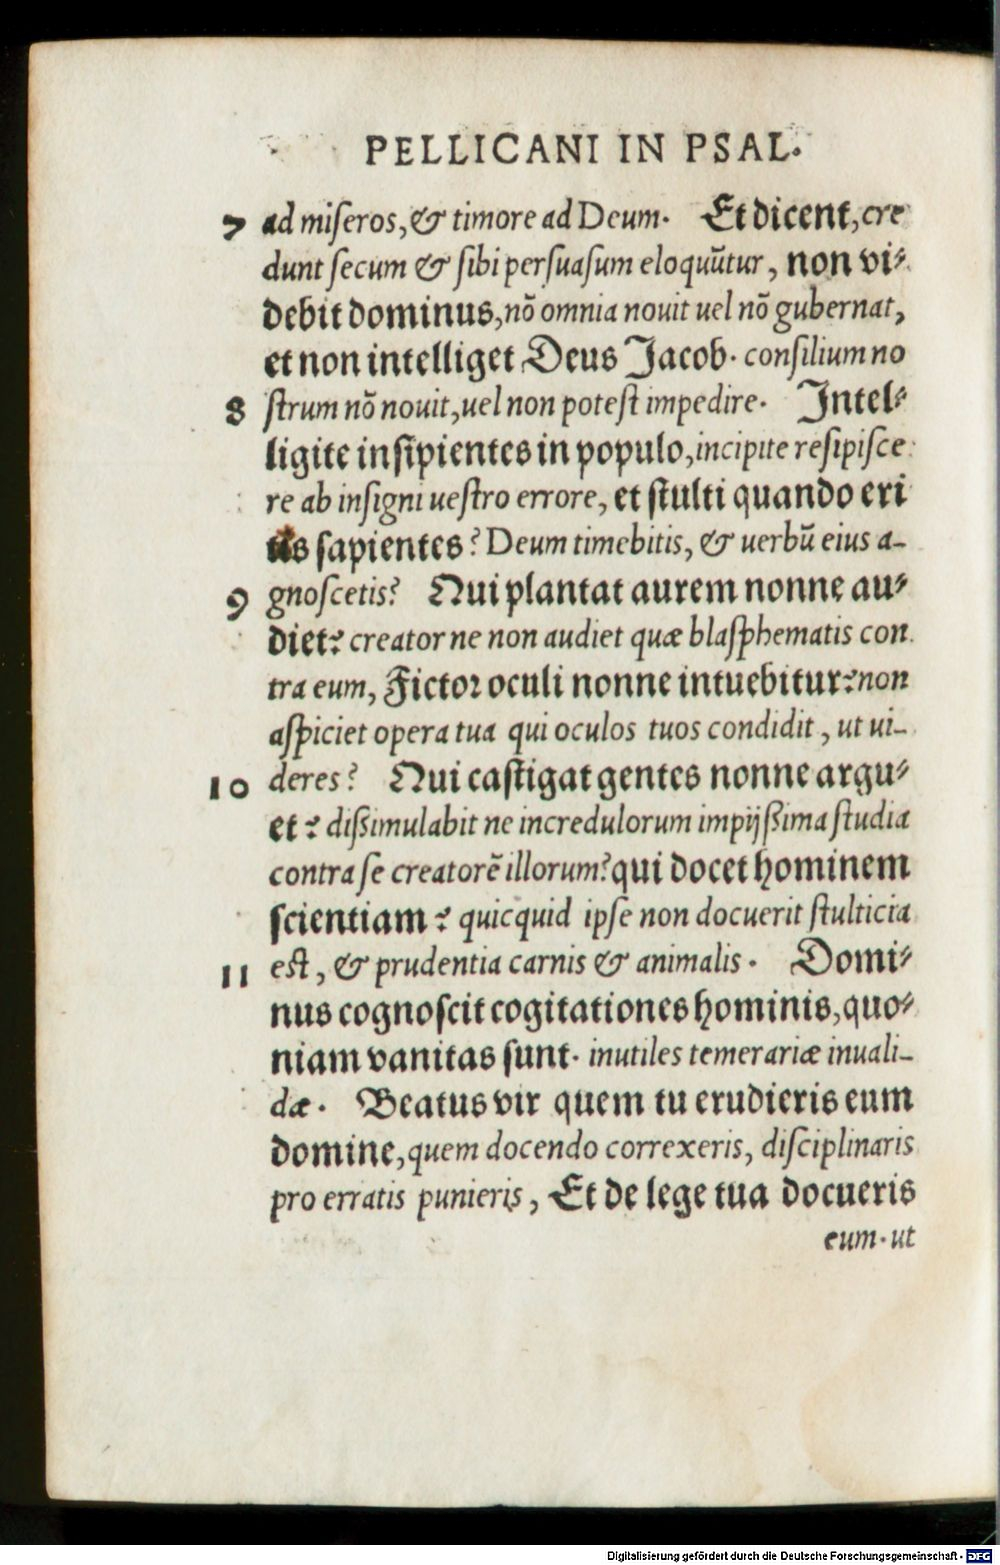 PELLICANI IN PSAL.
7 ad miſeros, & timore ad Deum. Et dicent, cre
dunt ſecum & ſibi perſuaſum eloquūtur, non vi⸗
debit dominus, nō omnia nouit uel nō gubernat,
et non intelliget Deus Jacob. conſilium no
8 ſtrum nō nouit, uel non poteſt impedire. Intel⸗
ligite inſipientes in populo, incipite reſipiſce
re ab inſigni ueſtro errore, et ſtulti quando eri
tis ſapientes? Deum timebitis, & uerbū eius a-
9 gnoſcetis? Qui plantat aurem nonne au⸗
diet? creator ne non audiet quæ blaſphematis con
tra eum, Fictor oculi nonne intuebitur? non
aſpiciet opera tua qui oculos tuos condidit, ut ui-
10 deres? Qui caſtigat gentes nonne argu⸗
et? diſsimulabit ne incredulorum impijſsima ſtudia
contra ſe creatorē illorum? qui docet hominem
ſcientiam? quicquid ipſe non docuerit ſtulticia
11 eſt, & prudentia carnis & animalis. Domi⸗
nus cognoſcit cogitationes hominis, quo⸗
niam vanitas ſunt. inutiles temerariæ inuali-
dæ. Beatus vir quem tu erudieris eum
domine, quem docendo correxeris, diſciplinaris
pro erratis punieris, Et de lege tua docueris
eum. ut
Digitalisierung gefördert durch die Deutsche Forschungsgemeinschaft - DFG